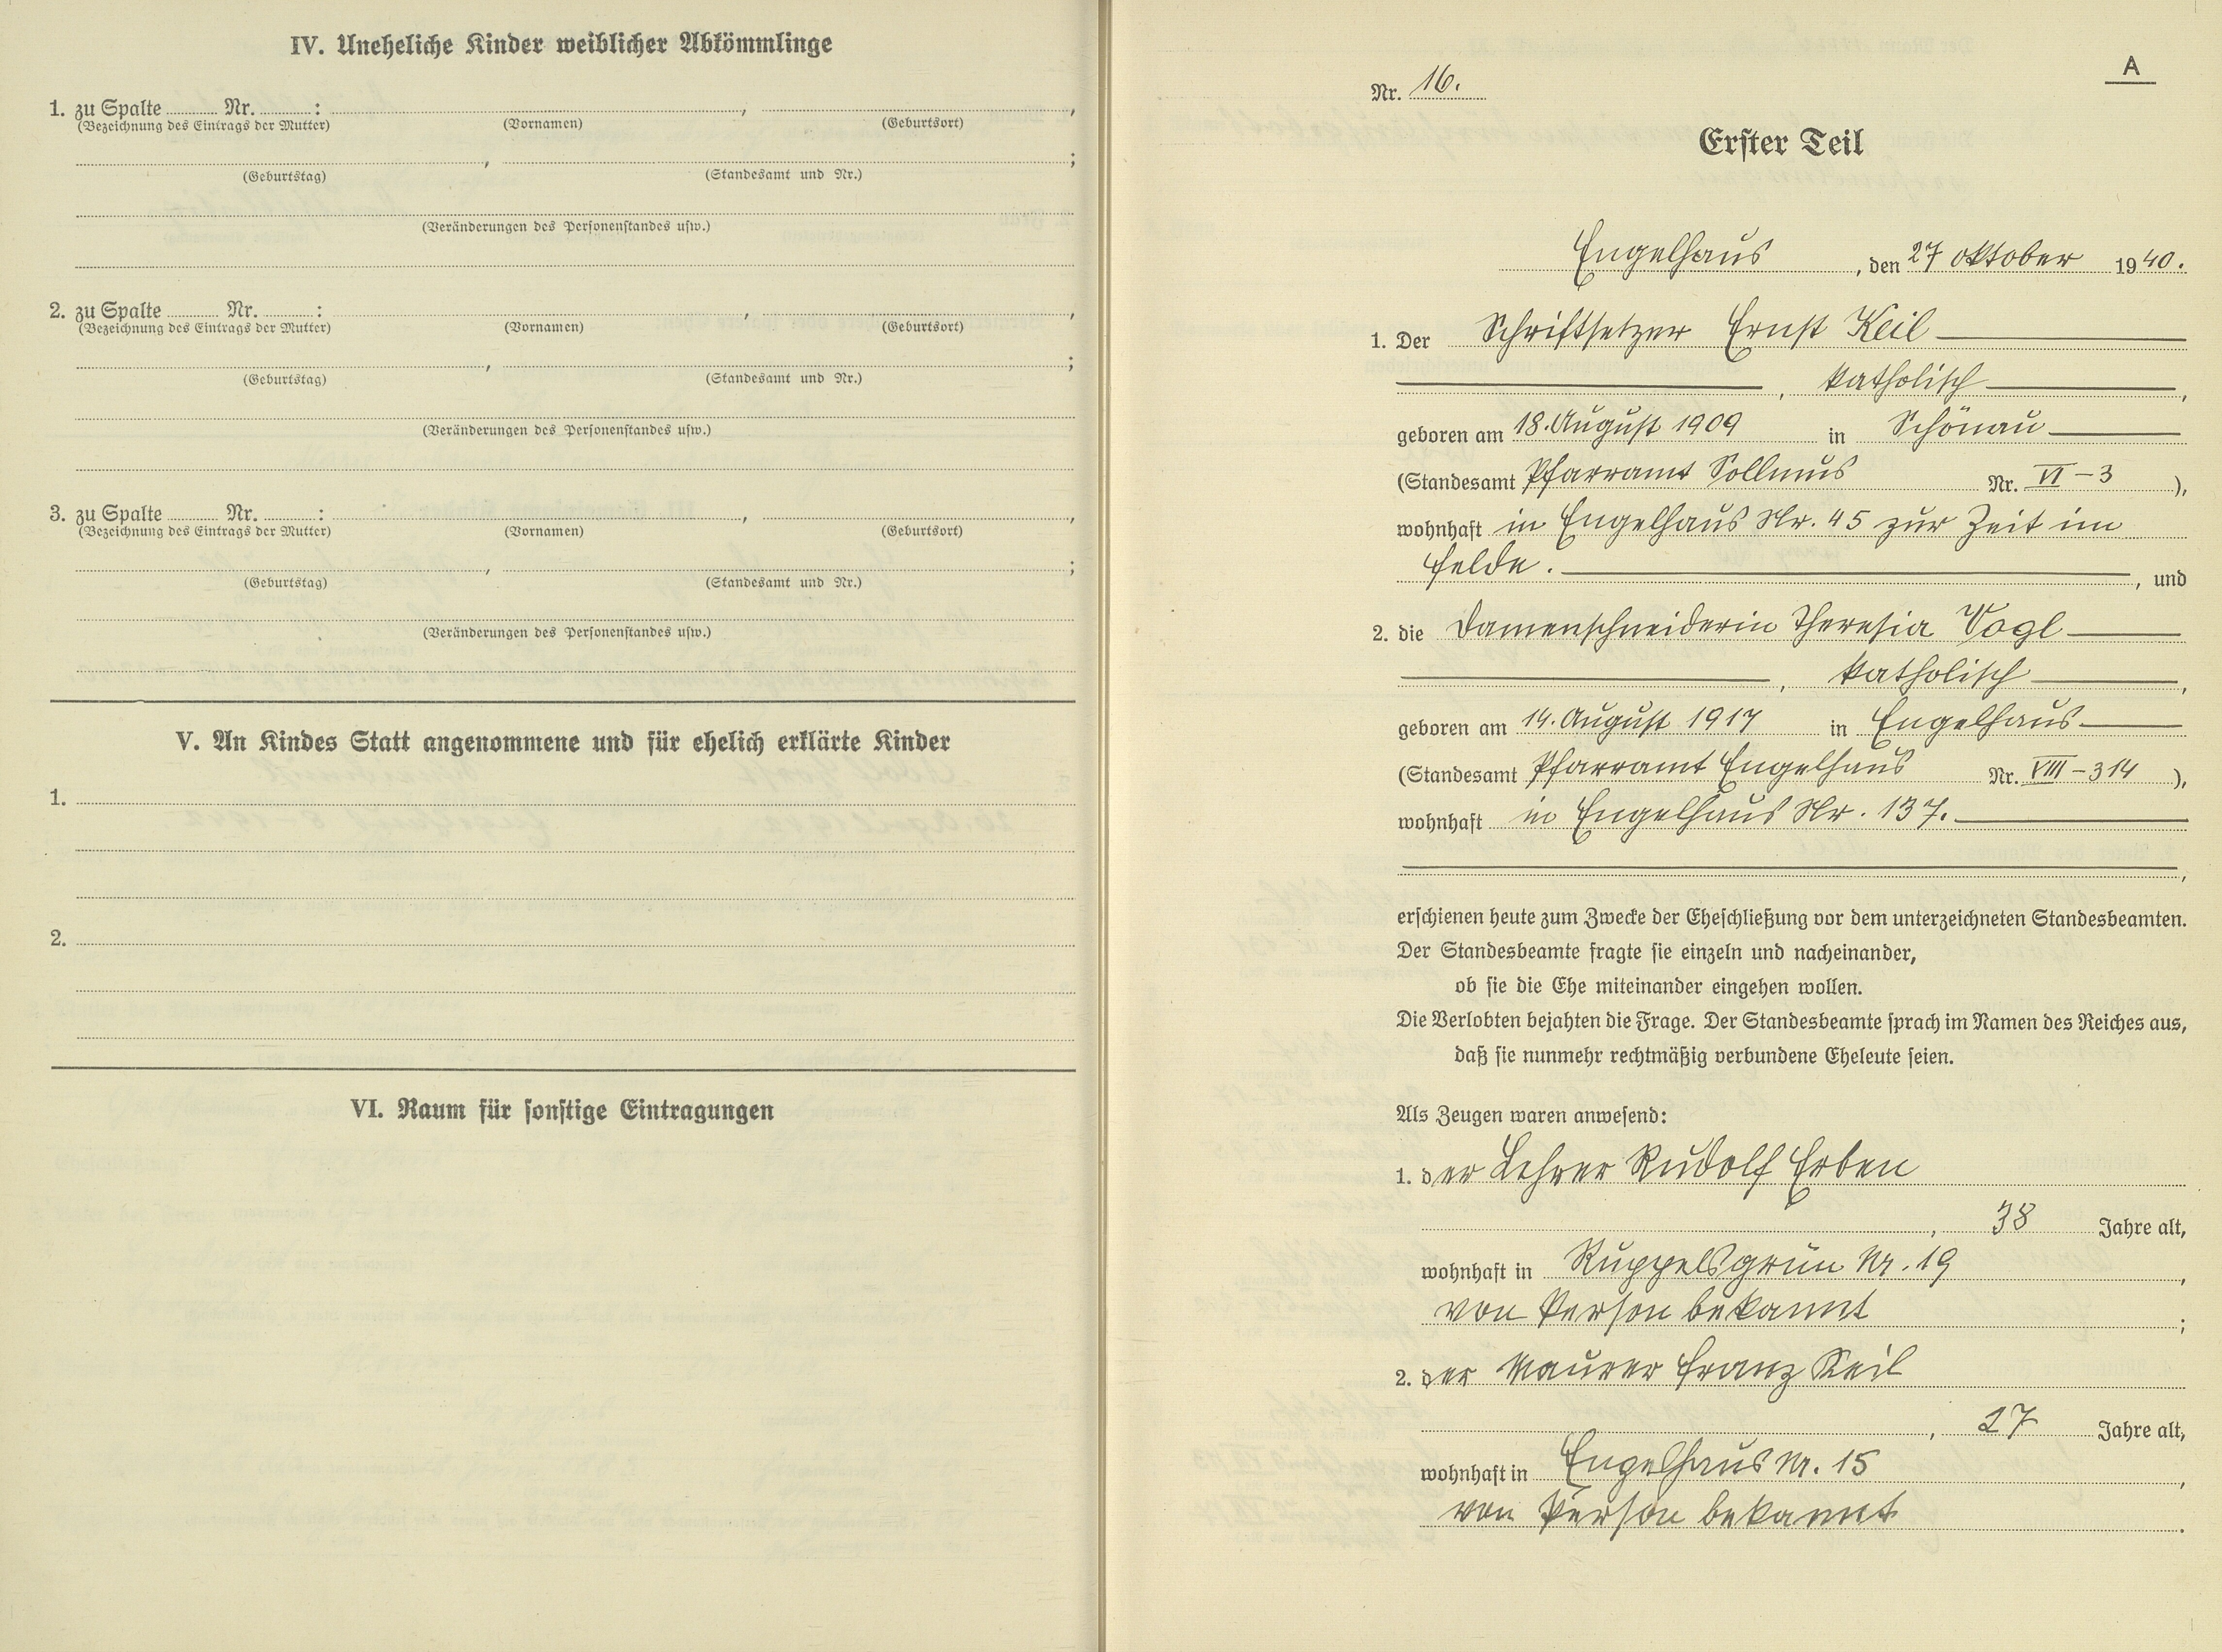 IV. Uneheliche Kinder weiblicher Abkömmlinge
1. zu Spalte ........ Nr. ........ : , ,
(Bezeichnung des Eintrags der Mutter) (Vornamen) (Geburtsort)
, ;
(Geburtstag) (Standesamt und Nr.)
(Veränderungen des Personenstandes usw.)
2. zu Spalte ........ Nr. ........ : , ,
(Bezeichnung des Eintrags der Mutter) (Vornamen) (Geburtsort)
, ;
(Geburtstag) (Standesamt und Nr.)
(Veränderungen des Personenstandes usw.)
3. zu Spalte ........ Nr. ........ : , ,
(Bezeichnung des Eintrags der Mutter) (Vornamen) (Geburtsort)
, ;
(Geburtstag) (Standesamt und Nr.)
(Veränderungen des Personenstandes usw.)
V. An Kindes Statt angenommene und für ehelich erklärte Kinder
1.
2.
VI. Raum für sonstige Eintragungen
A
Nr. 16.
Erster Teil
Engelhaus, den 27 Oktober 1940.
1. Der Schriftsetzer Ernst Keil
, katholisch,
geboren am 18. August 1909 in Schönau
(Standesamt Pfarramt Sollmus Nr. VI – 3 ),
wohnhaft in Engelhaus Nr. 45 zur Zeit im
Felde. , und
2. die Damenschneiderin Theresia Vogl
, katholisch,
geboren am 14. August 1917 in Engelhaus
(Standesamt Pfarramt Engelhaus Nr. VIII – 314 ),
wohnhaft in Engelhaus Nr. 137.
,
erschienen heute zum Zwecke der Eheschließung vor dem unterzeichneten Standesbeamten.
Der Standesbeamte fragte sie einzeln und nacheinander,
ob sie die Ehe miteinander eingehen wollen.
Die Verlobten bejahten die Frage. Der Standesbeamte sprach im Namen des Reiches aus,
daß sie nunmehr rechtmäßig verbundene Eheleute seien.
Als Zeugen waren anwesend:
1. der Lehrer Rudolf Erben
, 38 Jahre alt,
wohnhaft in Ruppelsgrün Nr. 19,
von Person bekannt;
2. der Maurer Franz Keil
, 27 Jahre alt,
wohnhaft in Engelhaus Nr. 15,
von Person bekannt.